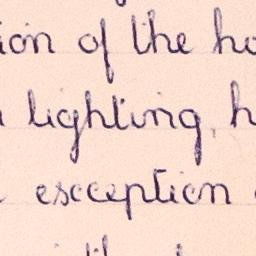 ion of the ho
lighting, h
escception